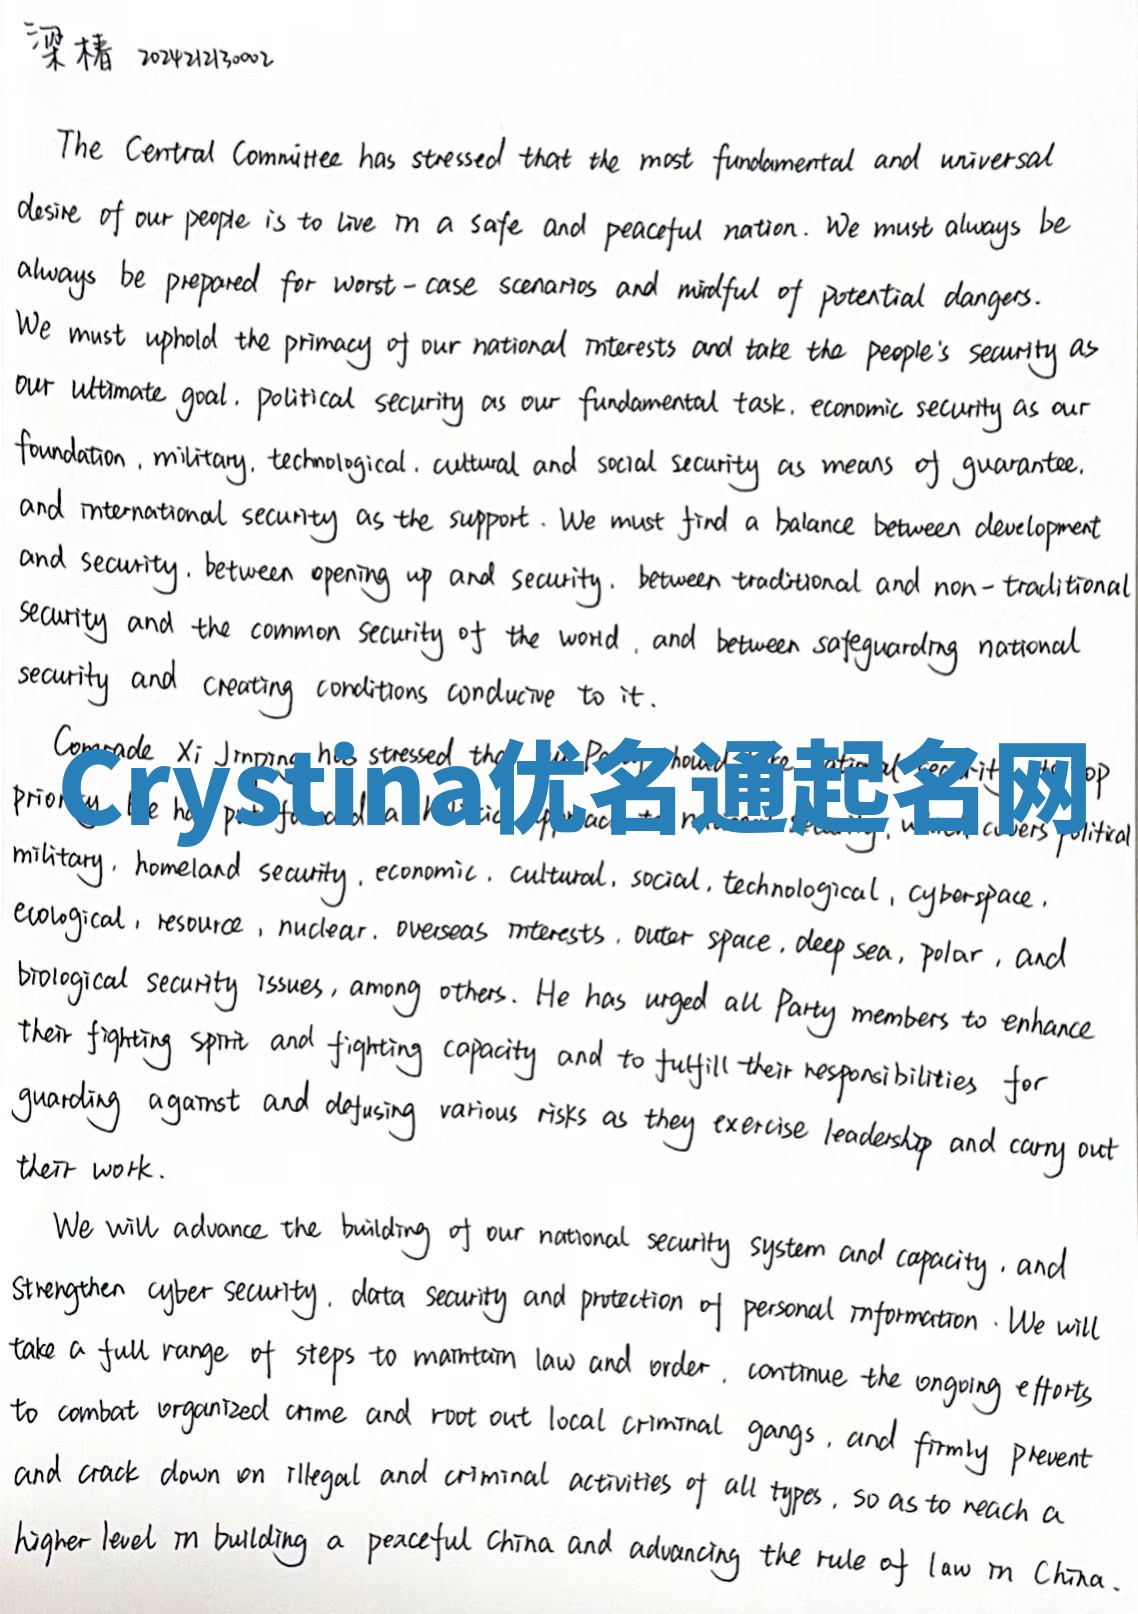 梁椿 2024212130002
The Central Committee has stressed that the most fundamental and universal
desire of our people is to live in a safe and peaceful nation. We must always be
always be prepared for worst-case scenarios and mindful of potential dangers.
We must uphold the primacy of our national interests and take the people's security as
our ultimate goal, political security as our fundamental task, economic security as our
foundation, military, technological, cultural and social security as means of guarantee,
and international security as the support. We must find a balance between development
and security, between opening up and security, between traditional and non-traditional
security and the common security of the world, and between safeguarding national
security and creating conditions conducive to it.
Comrade Xi Jinping has stressed
Crystina优名通起名网
covers political
military, homeland security, economic, cultural, social, technological, cyberspace,
ecological, resource, nuclear, overseas interests, outer space, deep sea, polar, and
biological security issues, among others. He has urged all Party members to enhance
their fighting spirit and fighting capacity and to fulfill their responsibilities for
guarding against and defusing various risks as they exercise leadership and carry out
their work.
We will advance the building of our national security system and capacity, and
strengthen cyber security, data security and protection of personal information. We will
take a full range of steps to maintain law and order, continue the ongoing efforts
to combat organized crime and root out local criminal gangs, and firmly prevent
and crack down on illegal and criminal activities of all types, so as to reach a
higher level in building a peaceful China and advancing the rule of law in China.